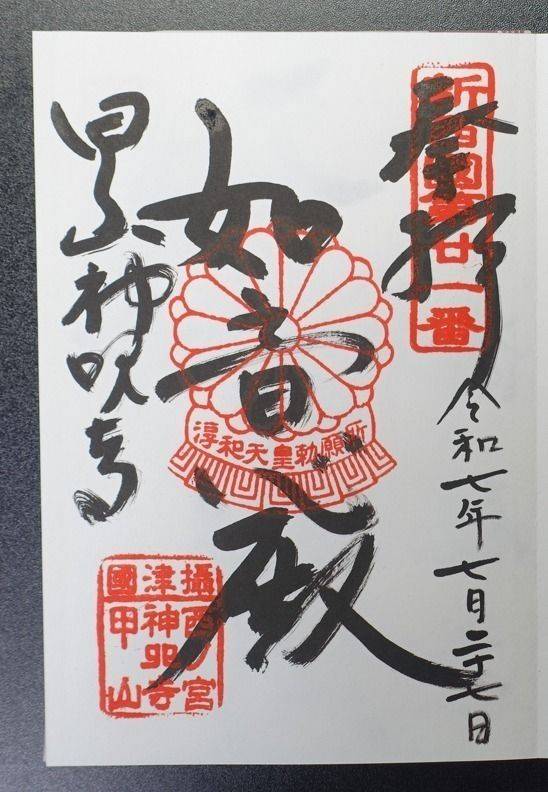 新西國第廿一番
奉拝
令和七年七月二十七日
如意殿
淳和天皇勅願所
甲山
神呪寺
攝津國
西ノ宮
神呪寺
甲山